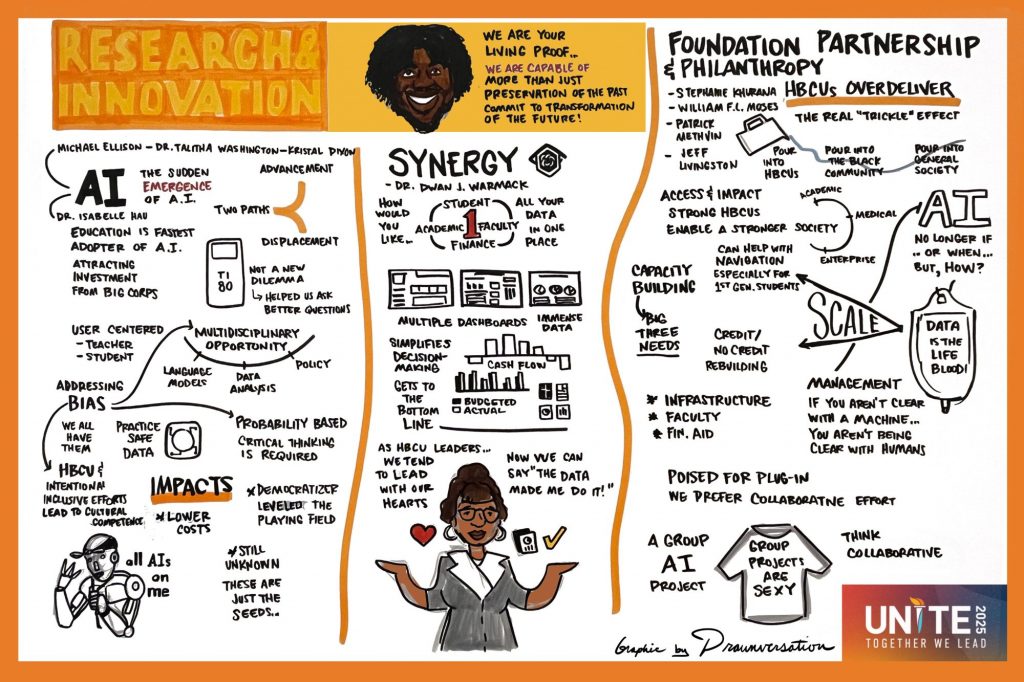 RESEARCH &
INNOVATION
WE ARE YOUR
LIVING PROOF...
WE ARE CAPABLE OF
MORE THAN JUST
PRESERVATION OF THE PAST
COMMIT TO TRANSFORMATION
OF THE FUTURE!
MICHAEL ELLISON - DR. TALITHA WASHINGTON - KRISTAL DIXON
AI
THE SUDDEN
EMERGENCE
OF A.I.
DR. ISABELLE HAU
ADVANCEMENT
TWO PATHS
DISPLACEMENT
EDUCATION IS FASTEST
ADOPTER OF A.I.
ATTRACTING
INVESTMENT
FROM BIG CORPS
TI
80
NOT A NEW
DILEMMA
HELPED US ASK
BETTER QUESTIONS
USER CENTERED
- TEACHER
- STUDENT
MULTIDISCIPLINARY
OPPORTUNITY
LANGUAGE
MODELS
DATA
ANALYSIS
POLICY
ADDRESSING
BIAS
WE ALL
HAVE
THEM
PRACTICE
SAFE
DATA
PROBABILITY BASED
CRITICAL THINKING
IS REQUIRED
HBCU &
INTENTIONAL
INCLUSIVE EFFORTS
LEAD TO CULTURAL
COMPETENCE
IMPACTS
* LOWER
COSTS
* DEMOCRATIZER
LEVELED THE
PLAYING FIELD
* STILL
UNKNOWN
THESE ARE
JUST THE
SEEDS...
all AIs
on
me
SYNERGY
- DR. DWAN J. WARMACK
HOW
WOULD
YOU
LIKE...
STUDENT
ACADEMIC 1 FACULTY
FINANCE
ALL YOUR
DATA
IN ONE
PLACE
MULTIPLE DASHBOARDS
IMMENSE
DATA
SIMPLIFIES
DECISION-
MAKING
CASH FLOW
GETS TO
THE
BOTTOM
LINE
BUDGETED
ACTUAL
AS HBCU LEADERS...
WE TEND
TO LEAD
WITH OUR
HEARTS
NOW WE CAN
SAY "THE DATA
MADE ME DO IT!"
FOUNDATION PARTNERSHIP
& PHILANTHROPY
- STEPHANIE KHURANA
- WILLIAM F.L. MOSES
- PATRICK
METHVIN
- JEFF
LIVINGSTON
HBCUs OVERDELIVER
THE REAL "TRICKLE" EFFECT
POUR
INTO
HBCUs
POUR INTO
THE BLACK
COMMUNITY
POUR INTO
GENERAL
SOCIETY
ACCESS & IMPACT
STRONG HBCUS
ENABLE A STRONGER SOCIETY
ACADEMIC
MEDICAL
ENTERPRISE
AI
NO LONGER IF
.. OR WHEN...
BUT, HOW?
CAPACITY
BUILDING
BIG
THREE
NEEDS
CAN HELP WITH
NAVIGATION
ESPECIALLY FOR
1ST GEN. STUDENTS
SCALE
DATA
IS THE
LIFE
BLOOD!
CREDIT/
NO CREDIT
REBUILDING
* INFRASTRUCTURE
* FACULTY
* FIN. AID
MANAGEMENT
IF YOU AREN'T CLEAR
WITH A MACHINE...
YOU AREN'T BEING
CLEAR WITH HUMANS
POISED FOR PLUG-IN
WE PREFER COLLABORATIVE EFFORT
A GROUP
AI
PROJECT
GROUP
PROJECTS
ARE
SEXY
THINK
COLLABORATIVE
Graphic by Draunversation
UNITE 2025
TOGETHER WE LEAD